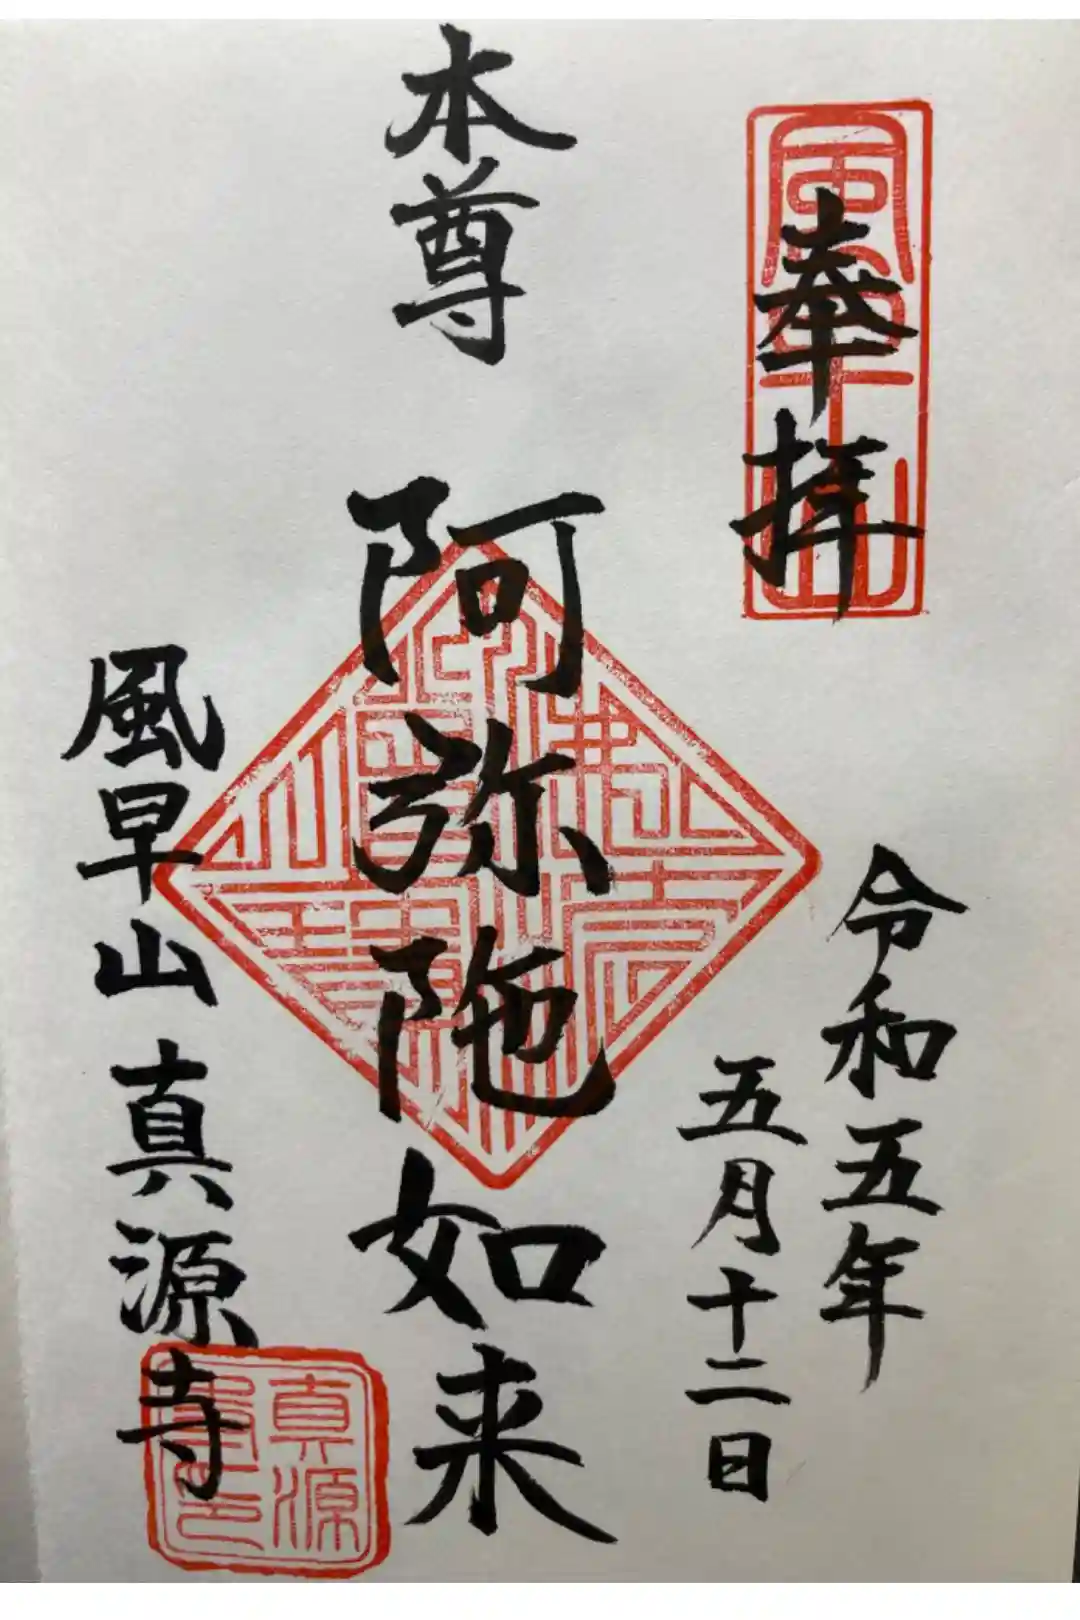 奉拝
風早山
令和五年
五月十二日
本尊 阿弥陀如来
風早山 真源寺
真源
寺印